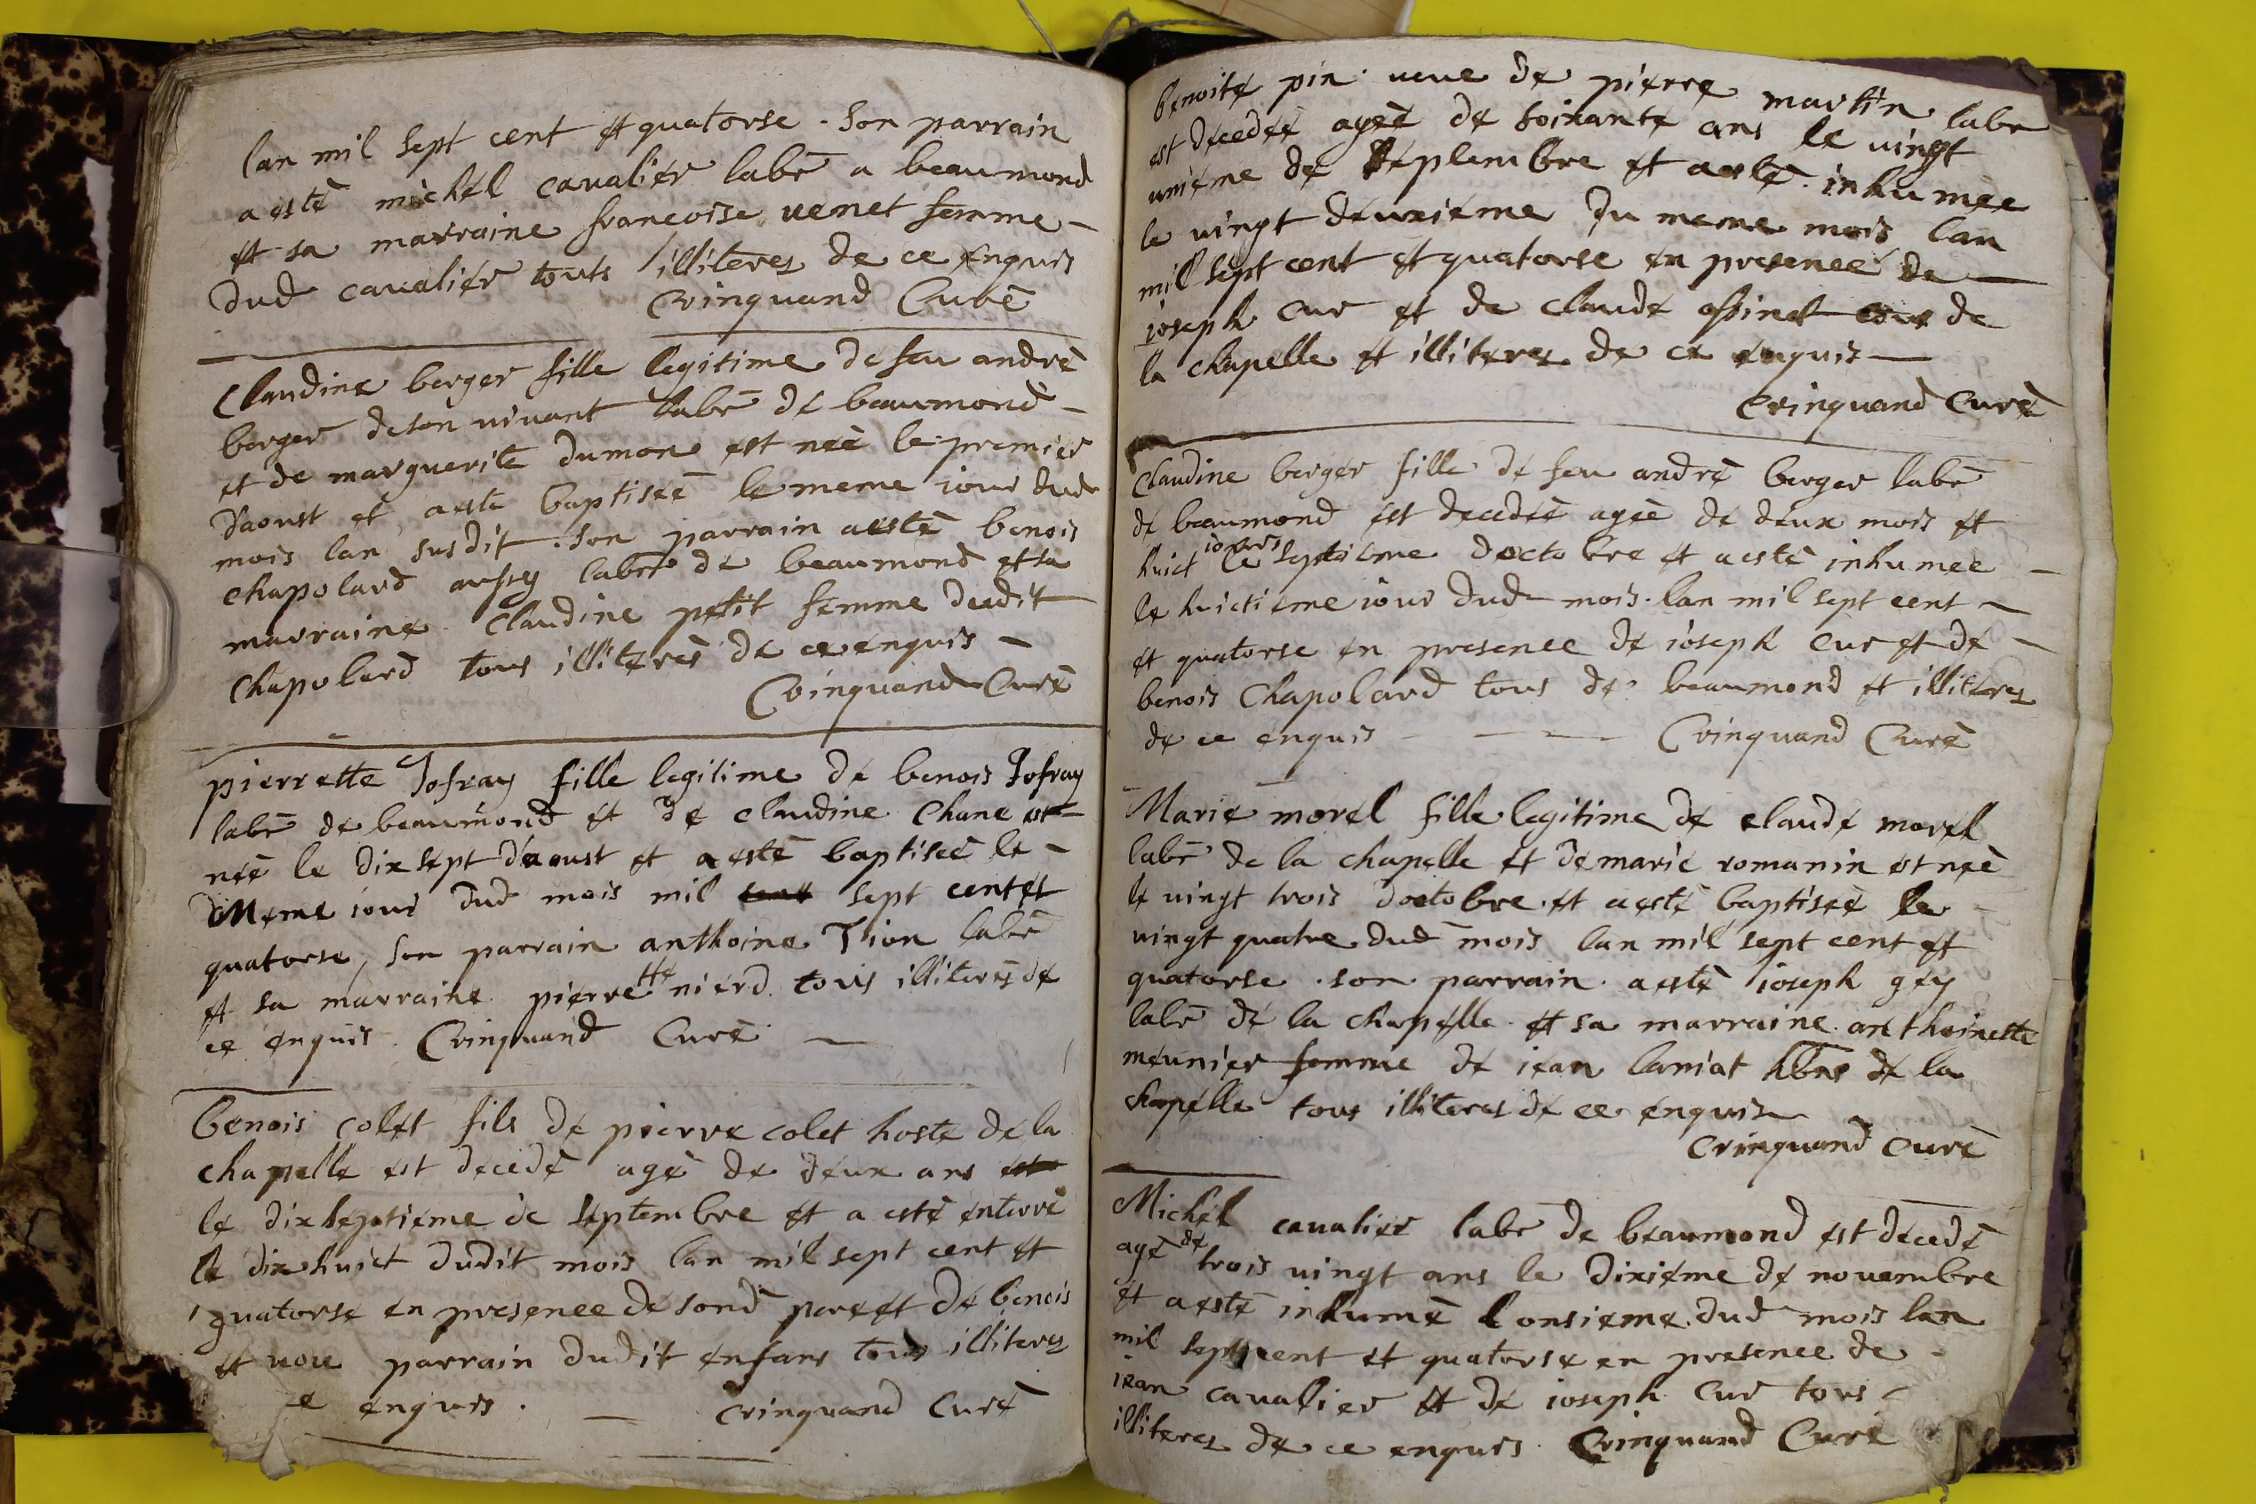 lan mil sept cent et quatorse . son parrain
a esté michel caualier labr a beaumond
et sa marraine francoise uenet femme
dud caualier touts illiteres de ce enquis
Crinquand Curé
Claudine berger fille legitime de feu andré
berger de son uiuant labr de beaumond
et de marguerite dumon est neé le premier
d'aoust et a esté baptiseé le meme iour dud
mois lan susdit . son parrain a esté benois
chapolard aussy labr de beaumond et sa
marraine Claudine petit femme dudit
chapolard tous illiterés de ce enquis
Crinquand Curé
pierrette Jofray fille legitime de benois Jofray
labr de beaumond et de claudine Chane est
neé le dix sept d'aoust et a esté baptiseé le
meme iour dud mois mil sept cent et
quatorse, son parrain anthoine Tion labr
et sa marraine pierrette nierd tous illiterés de
ce enquis . Crinquand Curé
benois colet fils de pierre colet hoste de la
chapelle est decedé agé de deux ans est
le dix septieme de septembre et a esté enterré
le dix huict dudit mois lan mil sept cent et
quatorse en presence de sond pere et de benois
et parrain dudit enfans tous illiteres
e enquis . Crinquand Curé
benoite pin ueue de pierre martin labr
est decedeé ageé de soixante ans le uingt
unieme de septembre et a esté inhumeé
le uingt deuxieme du meme mois lan
mil sept cent et quatorse en presence de
ioseph Cur et de claude de
la chapelle et illiteres de ce enquis
Crinquand Curé
Claudine berger fille de feu andré berger labr
de beaumond est decedeé ageé de deux mois et
huict iours le septieme doctobre et a esté inhumeé
le huictieme iour dud mois lan mil sept cent
et quatorse en presence de ioseph Cur et de
benois Chapolard tous de beaumond et illiteres
de ce enquis Crinquand Curé
Marie morel fille legitime de claude morel
labr de la chapelle et de marie romanin est neé
le uingt trois doctobre et a esté baptiseé le
uingt quatre dud mois lan mil sept cent et
quatorse . son parrain a esté ioseph gey
labr de la chapelle et sa marraine anthoinette
meunier femme de iean laniat de la
chapelle tous illiteres de ce enquis
Crinquand Curé
Michel caualier labr de beaumond est decedé
agé de trois uingt ans le dixieme de nouembre
et a esté inhumé lonsieme dud mois lan
mil sept cent et quatorse en presence de
iean cauallier et de ioseph Cur tous
illiteres de ce enquis . Crinquand Curé